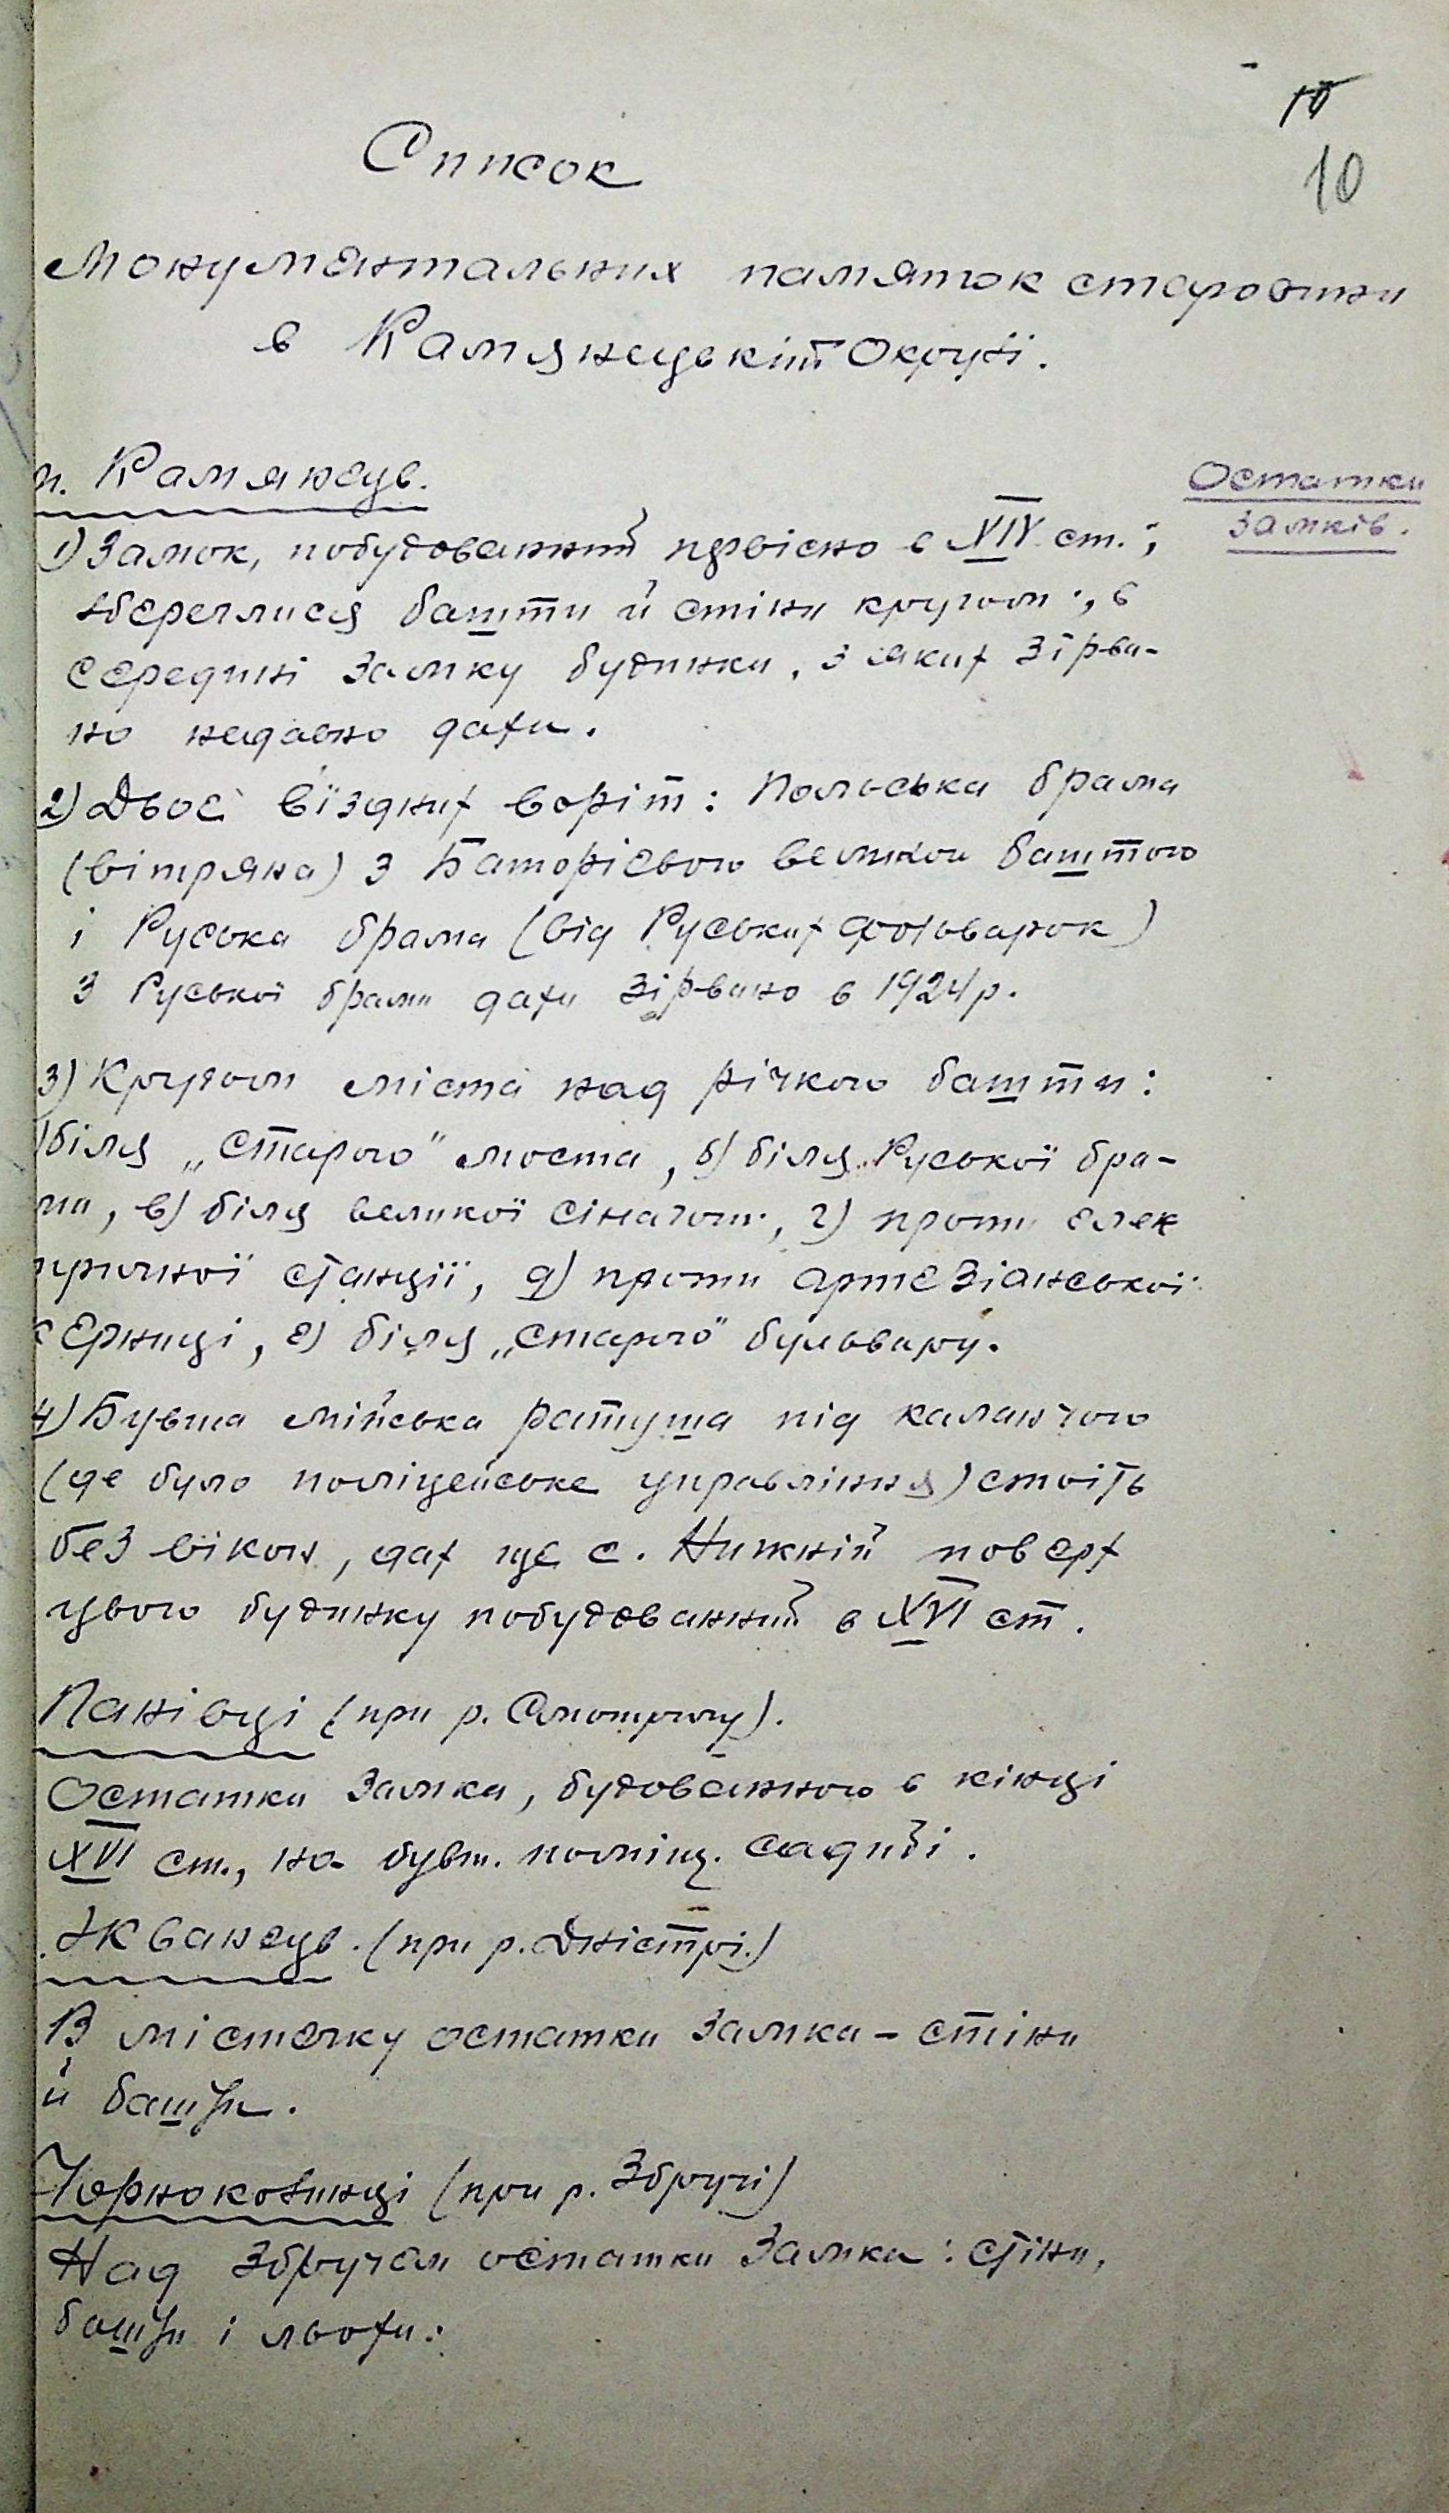 10
10
Список
монументальних памяток старовини
в Камянецькій Окрузі.
м. Камянець.
Остатки
замків.
1) Замок, побудований первісно в XIV ст.;
збереглися башти й стіни кругом, в
середині замку будинки, з яких зірва-
но недавно дахи.
2) Двоє візних воріт: Польська брама
(вітряна) з Баторієвою великою баштою
і Руська брама (від Руських фольварок)
З Руської брами дахи зірвано в 1924 р.
3) Кругом міста над річкою башти:
біля „старого" моста, б) біля Руської бра-
ми, в) біля великої сінагоги, г) проти елек
тричної станції, д) проти артезіанської
керниці, е) біля „старого" бульвару.
4) Бувша мійська ратуша під каланчою
(де було поліцейське управління) стоїть
без вікон, дах ще є. Нижній поверх
цього будинку побудований в XVI ст.
Панівці (при р. Смотричу).
Остатки замка, будованого в кінці
XVI ст., на бувш. поміщ. садибі.
Жванець (при р. Дністрі.)
В містечку остатки замка - стіни
й башти.
Чорнокозинці (при р. Збручі)
Над Збручем остатки замка: стіни,
башти і льохи.